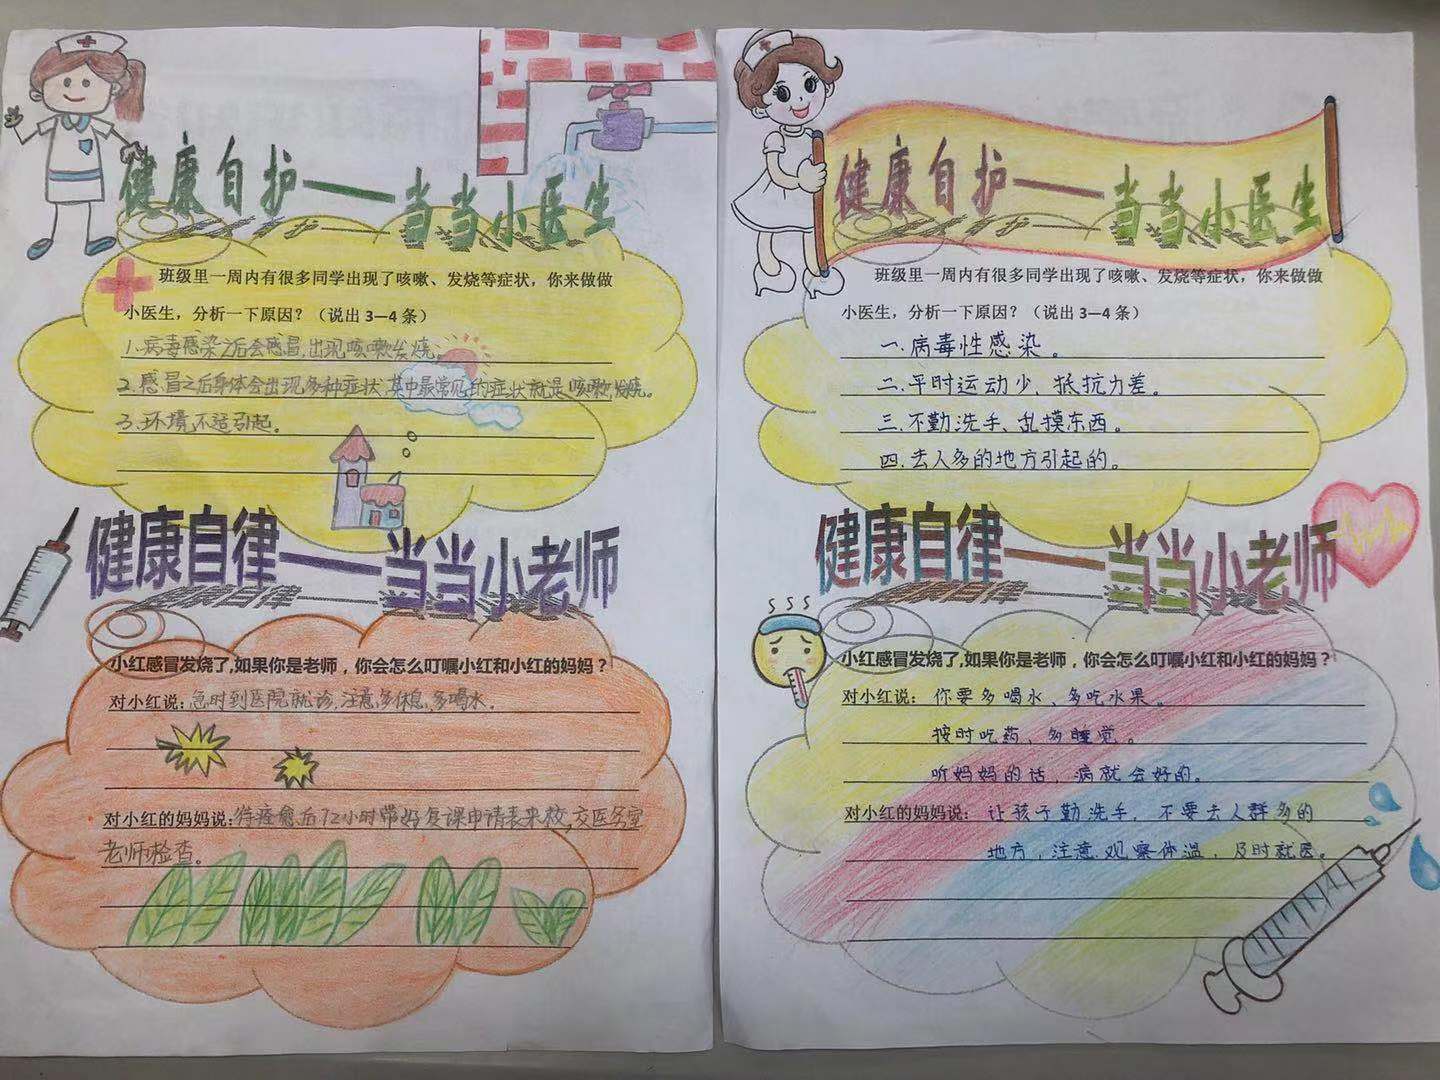 健康自护——当当小医生
班级里一周内有很多同学出现了咳嗽、发烧等症状，你来做做
小医生，分析一下原因？（说出 3—4 条）
1.病毒感染之后会感冒,出现咳嗽发烧。
2.感冒之后身体会出现多种症状,其中最常见的症状就是咳嗽,发烧。
3.环境不适引起。
健康自律——当当小老师
小红感冒发烧了,如果你是老师，你会怎么叮嘱小红和小红的妈妈？
对小红说：急时到医院就诊,注意多休息,多喝水。
对小红的妈妈说：待痊愈后72小时带好复课申请表来校,交医务室
老师检查。
健康自护——当当小医生
班级里一周内有很多同学出现了咳嗽、发烧等症状，你来做做
小医生，分析一下原因？（说出 3—4 条）
一.病毒性感染。
二.平时运动少、抵抗力差。
三.不勤洗手、乱摸东西。
四.去人多的地方引起的。
健康自律——当当小老师
小红感冒发烧了,如果你是老师，你会怎么叮嘱小红和小红的妈妈？
对小红说：你要多喝水、多吃水果。
按时吃药、多睡觉。
听妈妈的话，病就会好的。
对小红的妈妈说：让孩子勤洗手，不要去人群多的
地方，注意观察体温，及时就医。